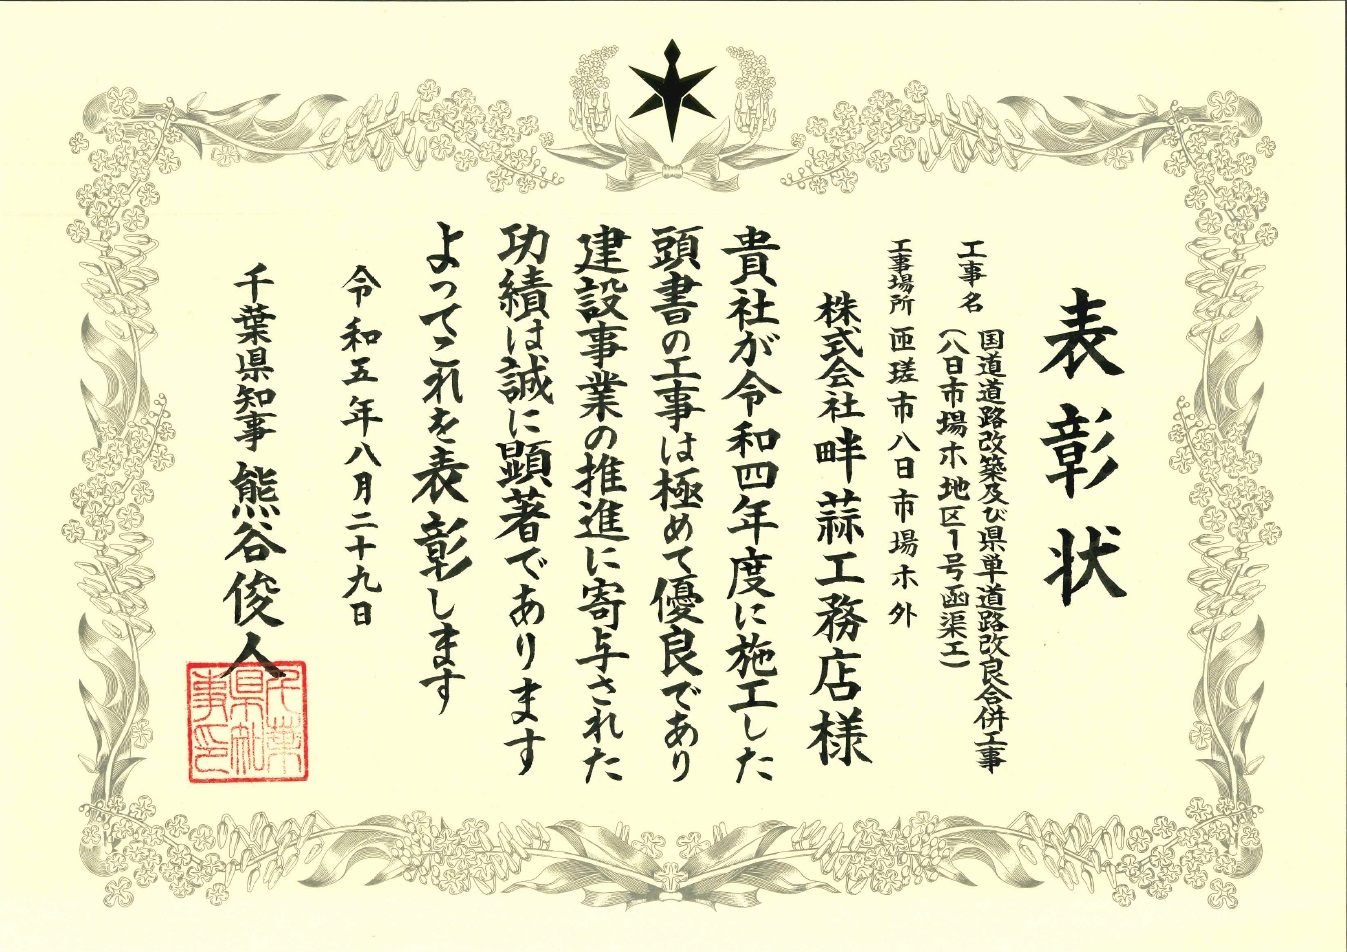 表彰状
工事名 国道道路改築及び県単道路改良合併工事
(八日市場ホ地区1号函渠工)
工事場所 匝瑳市八日市場ホ外
株式会社畔蒜工務店様
貴社が令和四年度に施工した
頭書の工事は極めて優良であり
建設事業の推進に寄与された
功績は誠に顕著であります
よってこれを表彰します
令和五年八月二十九日
千葉県知事 熊谷俊人
千葉
県知
事印